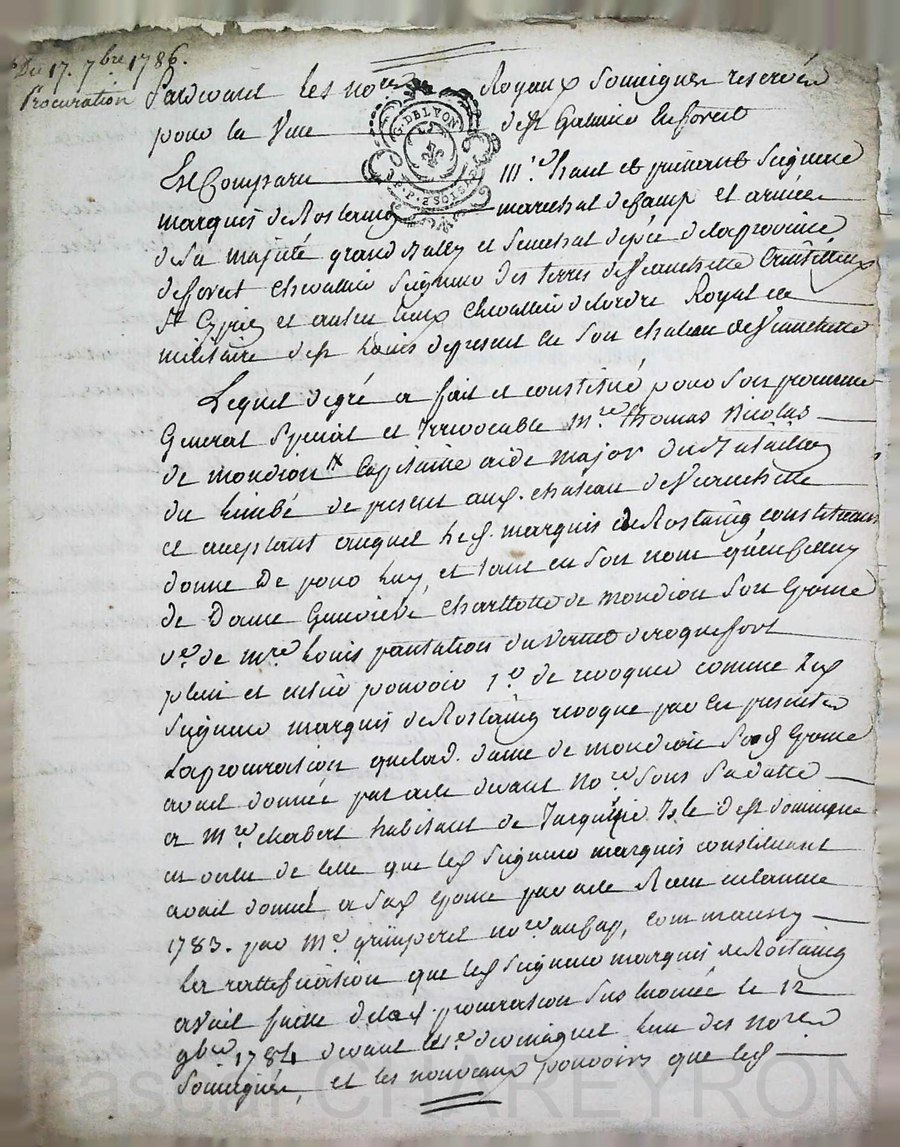 Du 17. 7bre 1786.
Procuration
Pardevant les nores Royaux Soussignés reservés
pour la Ville de St Galmier En forest
Est Comparu Mre haut et puissant Seigneur
marquis de Rostaing marechal de Camp et armées
de sa majesté grand Bailly et Senechal d'epée de la province
de forest chevallier Seigneur des terres de Veauchette
St Cyprien et autres lieux Chevallier de l'ordre Royal et
militaire de St Louis de present en son chateau de Veauchette
Lequel de gré a fait et constitué pour son procureur
General Special et Irrevocable Mre Thomas Nicolas
de mondion Capitaine aide major du Bataillon
du Limbé de present aud. chateau de Veauchette
et acceptant auquel led. marquis de Rostaing constituant
donne De pour Luy, et tant en son nom qu'en celluy
de Dame Genevieve Charllotte de mondion Son Epouse
ve de mre Louis pantaléon du Vernet de roquefort
plein et entier pouvoir 1o de revoquer comme led
Seigneur marquis de Rostaing revoque par les presentes
La procuration que lad. dame de mondion Sad Epouse
avait donnée par acte devant nore sous Sa datte
a Mre charbert habitant de Isle de St domingue
en vertu de celle que led Seigneur marquis constituant
avait donné a Sad Epouse par acte Recu en l'année
1783. par Me nore au Cap, comm aussy
La rattification que led Seigneur marquis de Rostaing
avait faitte de lad procuration Sus enoncée le 12
9bre 1784 devant Me L'un des nores
Soussignés, et les nouveaux pouvoirs que led
Pascal CHAREYRON
G. DE LYON